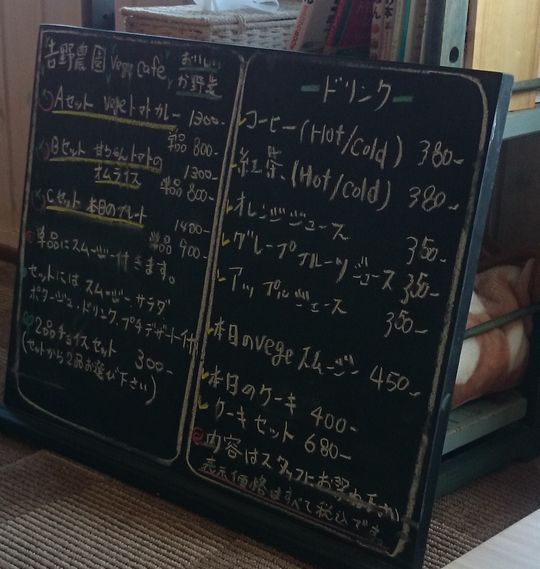 吉野農園 vege cafe
おいしいお野菜
Aセット vegeトマトカレー 1300-
単品 800-
Bセット 甘っちょトマトのオムライス 1300-
単品 800-
Cセット 本日のプレート 1400-
単品 900-
単品にスムージー付きます。
セットには スムージー・サラダ
ポタージュ・ドリンク、プチデザート付
2品チョイスセット 300-
(セットから2品お選び下さい)
ードリンクー
コーヒー(Hot/cold) 380-
紅茶、(Hot/cold) 380-
オレンジジュース 350-
グレープフルーツジュース 350-
アップルジュース 350-
本日のvegeスムージー 450-
本日のケーキ 400-
ケーキセット 680-
内容はスタッフにお尋ね下さい
表示価格はすべて税込です